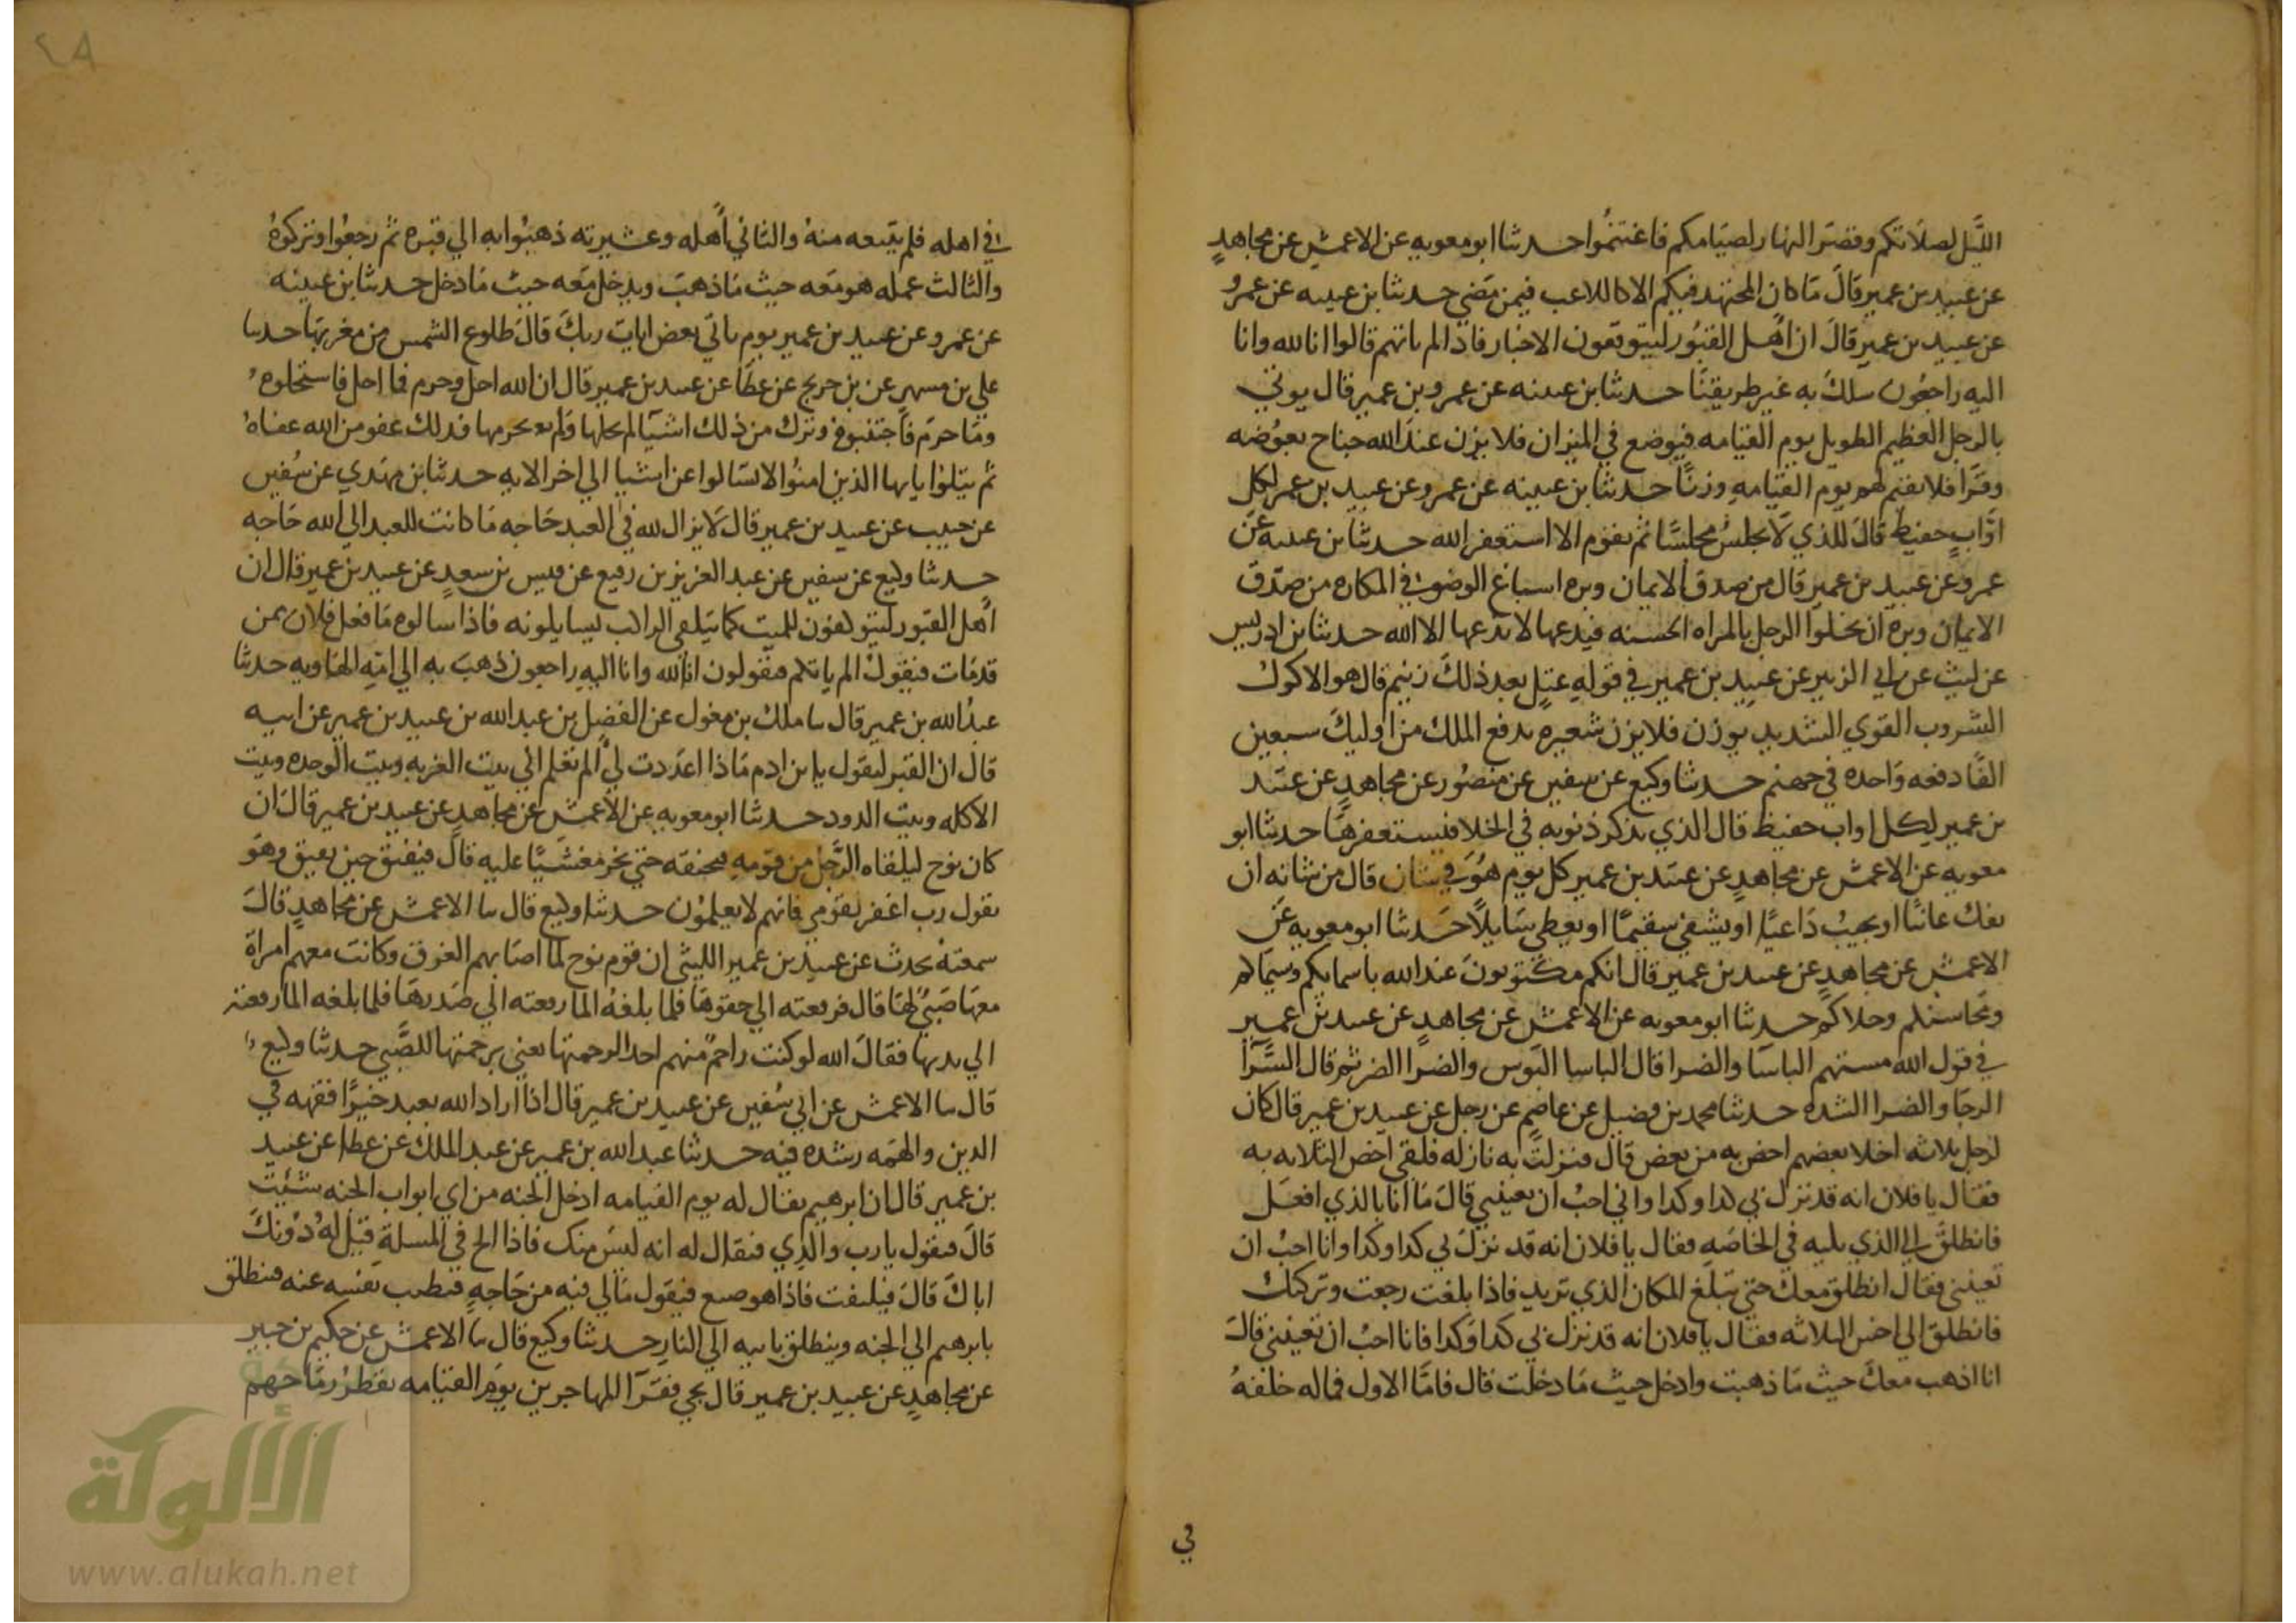 الليل لصلاتكم وقصر النهار لصيامكم فاغتنموا حدثنا ابو معويه عن الاعمش عن مجاهد
عن عبيد بن عمير قال ما كان المجتهد فيكم الا كاللاعب فيمن مضي حدثنا بن عيينه عن عمرو
عن عبيد بن عمير قال ان اهل القبور ليتوقعون الاخبار فاذا لم ياتهم قالوا انا لله وانا
اليه راجعون سلك به غير طريقنا حدثنا بن عيينه عن عمرو بن عمير قال يوتي
بالرجل العظيم الطويل يوم القيامه فيوضع في الميزان فلا يزن عند الله جناح بعوضه
وقرا فلا نقيم لهم يوم القيامه وزنا حدثنا بن عيينه عن عمرو عن عبيد بن عمير لكل
اواب حفيظ قال للذي لا يجلس مجلسا ثم يقوم الا استغفر الله حدثنا بن عيينه عن
عمرو عن عبيد بن عمير قال من صدق الايمان وبره اسباغ الوضو في المكاره من صدق
الايمان وبره ان يخلوا الرجل بالمراه الحسنه فيدعها لا يدعها الا الله حدثنا بن ادريس
عن ليث عن ابي الزبير عن عبيد بن عمير في قوله عتل بعد ذلك زنيم قال هو الاكول
الشروب القوي الشديد يوزن فلا يزن شعيره يدفع الملك من اوليك سبعين
الفا دفعه واحده في جهنم حدثنا وكيع عن سفين عن منصور عن مجاهد عن عبيد
بن عمير لكل اواب حفيظ قال الذي يذكر ذنوبه في الخلا فيستغفرها حدثنا ابو
معويه عن الاعمش عن مجاهد عن عبيد بن عمير كل يوم هو في شان قال من شانه ان
يفك عانيا او يجيب داعيا او يشفي سقيما او يعطي سايلا حدثنا ابو معويه عن
الاعمش عن مجاهد عن عبيد بن عمير قال انكم مكتوبون عند الله باسمايكم وسيماكم
ومحاسنكم وحلاكم حدثنا ابو معويه عن الاعمش عن مجاهد عن عبيد بن عمير
في قول الله مستهم الباسا والضرا قال الباسا البوس والضرا الضر ثم قال السرا
الرجا والضرا الشده حدثنا محمد بن فضيل عن عاصم عن رجل عن عبيد بن عمير قال كان
لرجل ثلاثه اخلا بعضهم اخص به من بعض قال فنزلت به نازله فلقي اخص الثلاثه به
فقال يا فلان انه قد نزل بي كذا وكذا واني احب ان تعينني قال ما انا بالذي افعل
فانطلق الي الذي يليه في الخاصه فقال يا فلان انه قد نزل بي كذا وكذا وانا احب ان
تعينني فقال انطلق معك حتي تبلغ المكان الذي تريد فاذا بلغت رجعت وتركتك
فانطلق الي اخس الثلاثه فقال يا فلان انه قد نزل بي كذا وكذا فانا احب ان تعينني قال
انا اذهب معك حيث ما ذهبت وادخل حيث ما دخلت قال فاما الاول فماله خلفه
في
٢٨
في اهله فلم يتبعه منه والثاني اهله وعشيرته ذهبوا به الي قبره ثم رجعوا وتركوه
والثالث عمله هو معه حيث ما ذهب ويدخل معه حيث ما دخل حدثنا بن عيينه
عن عمرو عن عبيد بن عمير يوم ياتي بعض ايات ربك قال طلوع الشمس من مغربها حدثنا
علي بن مسهر عن بن جريج عن عطا عن عبيد بن عمير قال ان الله احل وحرم فما احل فاستحلوه
وما حرم فاجتنبوه وترك من ذلك اشيا لم يحلها ولم يحرمها فذلك عفو من الله عفاه
ثم يتلوا يايها الذين امنوا لا تسالوا عن اشيا الي اخر الايه حدثنا بن مهدي عن سفين
عن حبيب عن عبيد بن عمير قال لا يزال لله في العبد حاجه ما كانت للعبد الي الله حاجه
حدثنا وكيع عن سفين عن عبد العزيز بن رفيع عن قيس بن سعد عن عبيد بن عمير قال ان
اهل القبور ليتوكفون للميت كما يتلقي الراكب ليسايلونه فاذا سالوه ما فعل فلان ممن
قد مات فيقول الم ياتكم فيقولون انا لله وانا اليه راجعون ذهب به الي امه الهاويه حدثنا
عبد الله بن عمير قال ثنا ملك بن مغول عن الفضل بن عبد الله بن عبيد بن عمير عن ابيه
قال ان القبر ليقول يا بن ادم ماذا اعددت لي الم تعلم اني بيت الغربه وبيت الوحده وبيت
الاكله وبيت الدود حدثنا ابو معويه عن الاعمش عن مجاهد عن عبيد بن عمير قال ان
كان نوح ليلقاه الرجل من قومه فيخنقه حتي يخر مغشيا عليه قال فيفيق حين يفيق وهو
يقول رب اغفر لقومي فانهم لا يعلمون حدثنا وكيع قال ثنا الاعمش عن مجاهد قال
سمعته يحدث عن عبيد بن عمير الليثي ان قوم نوح لما اصابهم الغرق وكانت معهم امراة
معها صبي لها قال فرفعته الي حقوها فلما بلغه الما رفعته الي صدرها فلما بلغه الما رفعته
الي يديها فقال الله لو كنت راحم منهم احدا لرحمتها يعني برحمتها الصبي حدثنا وكيع
قال ثنا الاعمش عن ابي سفين عن عبيد بن عمير قال اذا اراد الله بعبد خيرا فقهه في
الدين والهمه رشده فيه حدثنا عبد الله بن عمير عن عبد الملك عن عطا عن عبيد
بن عمير قال ان ابرهيم يقال له يوم القيامه ادخل الجنه من اي ابواب الجنه شئت
قال فيقول يا رب والدي فيقال له انه ليس منك فاذا الح في المسلة قيل له دونك
اباك قال فيلتفت فاذا هو ضبع فيقول مالي فيه من حاجه فتطيب نفسه عنه فينطلق
بابرهيم الي الجنه وينطلق بابيه الي النار حدثنا وكيع قال ثنا الاعمش عن حكيم بن جبير
عن مجاهد عن عبيد بن عمير قال يجي فقرا المهاجرين يوم القيامه تقطر رماحهم
الألوكة
www.alukah.net